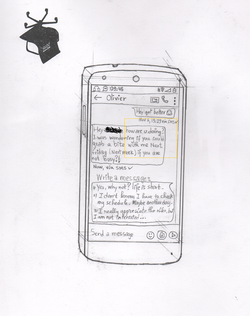 09:46
Olivier
Hey get better
Hey you are doing
I was wondering if you could
grab a bite with me Next
Friday (Next week) if you are
not busy?
Now, via SMS
Write a message
Yes, why not? life is short.
I don't know, I have to check
my schedule. Maybe another day
I really appreciate the ride but
I am not interested
Send a message